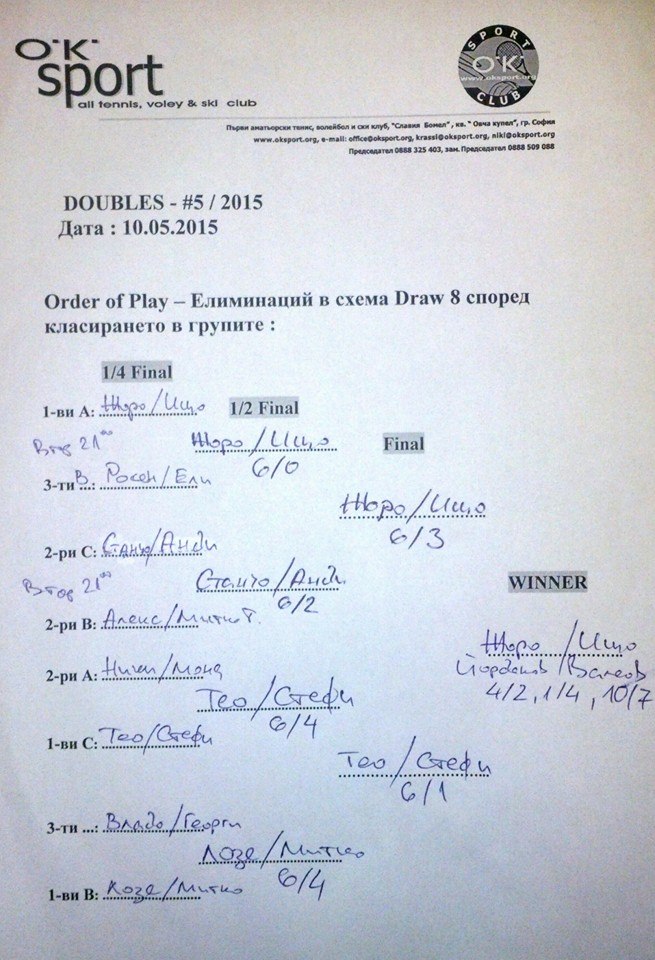 O.K.
sport
all tennis, voley & ski club
SPORT
O.K.
www.oksport.org
CLUB
Първи аматьорски тенис, волейбол и ски клуб, "Славия Бомел", кв. "Овча купел", гр. София
www.oksport.org, e-mail: office@oksport.org, krassi@oksport.org, niki@oksport.org
Председател 0888 325 403, зам. Председател 0888 509 088
DOUBLES - #5 / 2015
Дата : 10.05.2015
Order of Play – Елиминаций в схема Draw 8 според
класирането в групите :
1/4 Final
1-ви А: Жоро/Ицо
1/2 Final
Втор 21⁰⁰
Жоро/Ицо
6/0
Final
3-ти В.: Росен/Ели
Жоро/Ицо
6/3
2-ри С: Станчо/Анди
Втор 21⁰⁰
Станчо/Анди
6/2
WINNER
2-ри В: Алекс/Митко Т.
Жоро/Ицо
4/2, 1/4, 10/7
2-ри А: Ники/Монд
Тео/Стефи
6/4
1-ви С: Тео/Стефи
Тео/Стефи
6/1
3-ти ...: Владо/Георги
Козе/Митко
6/4
1-ви В: Козе/Митко